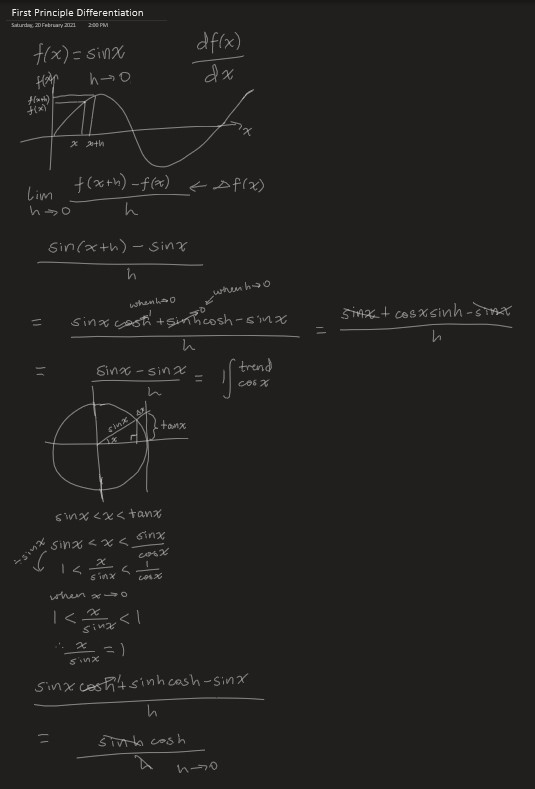 First Principle Differentiation
Saturday, 20 February 2021 2:00 PM
f(x) = sinx
df(x)/dx
f(x) h→0
f(x+h)
f(x)
x x+h x
lim h→0 (f(x+h) - f(x))/h ← Δf(x)
(sin(x+h) - sinx)/h
when h→0 when h→0
= (sinx cosh + sinh cosh - sinx)/h = (sinx + cosx sinh - sinx)/h
= (sinx - sinx)/h = trend cosx
sinx
x
tanx
sinx < x < tanx
÷sinx
sinx < x < sinx/cosx
1 < x/sinx < 1/cosx
when x→0
1 < x/sinx < 1
∴ x/sinx = 1
(sinx cosh + sinh cosh - sinx)/h
= (sinh cosh)/h h→0